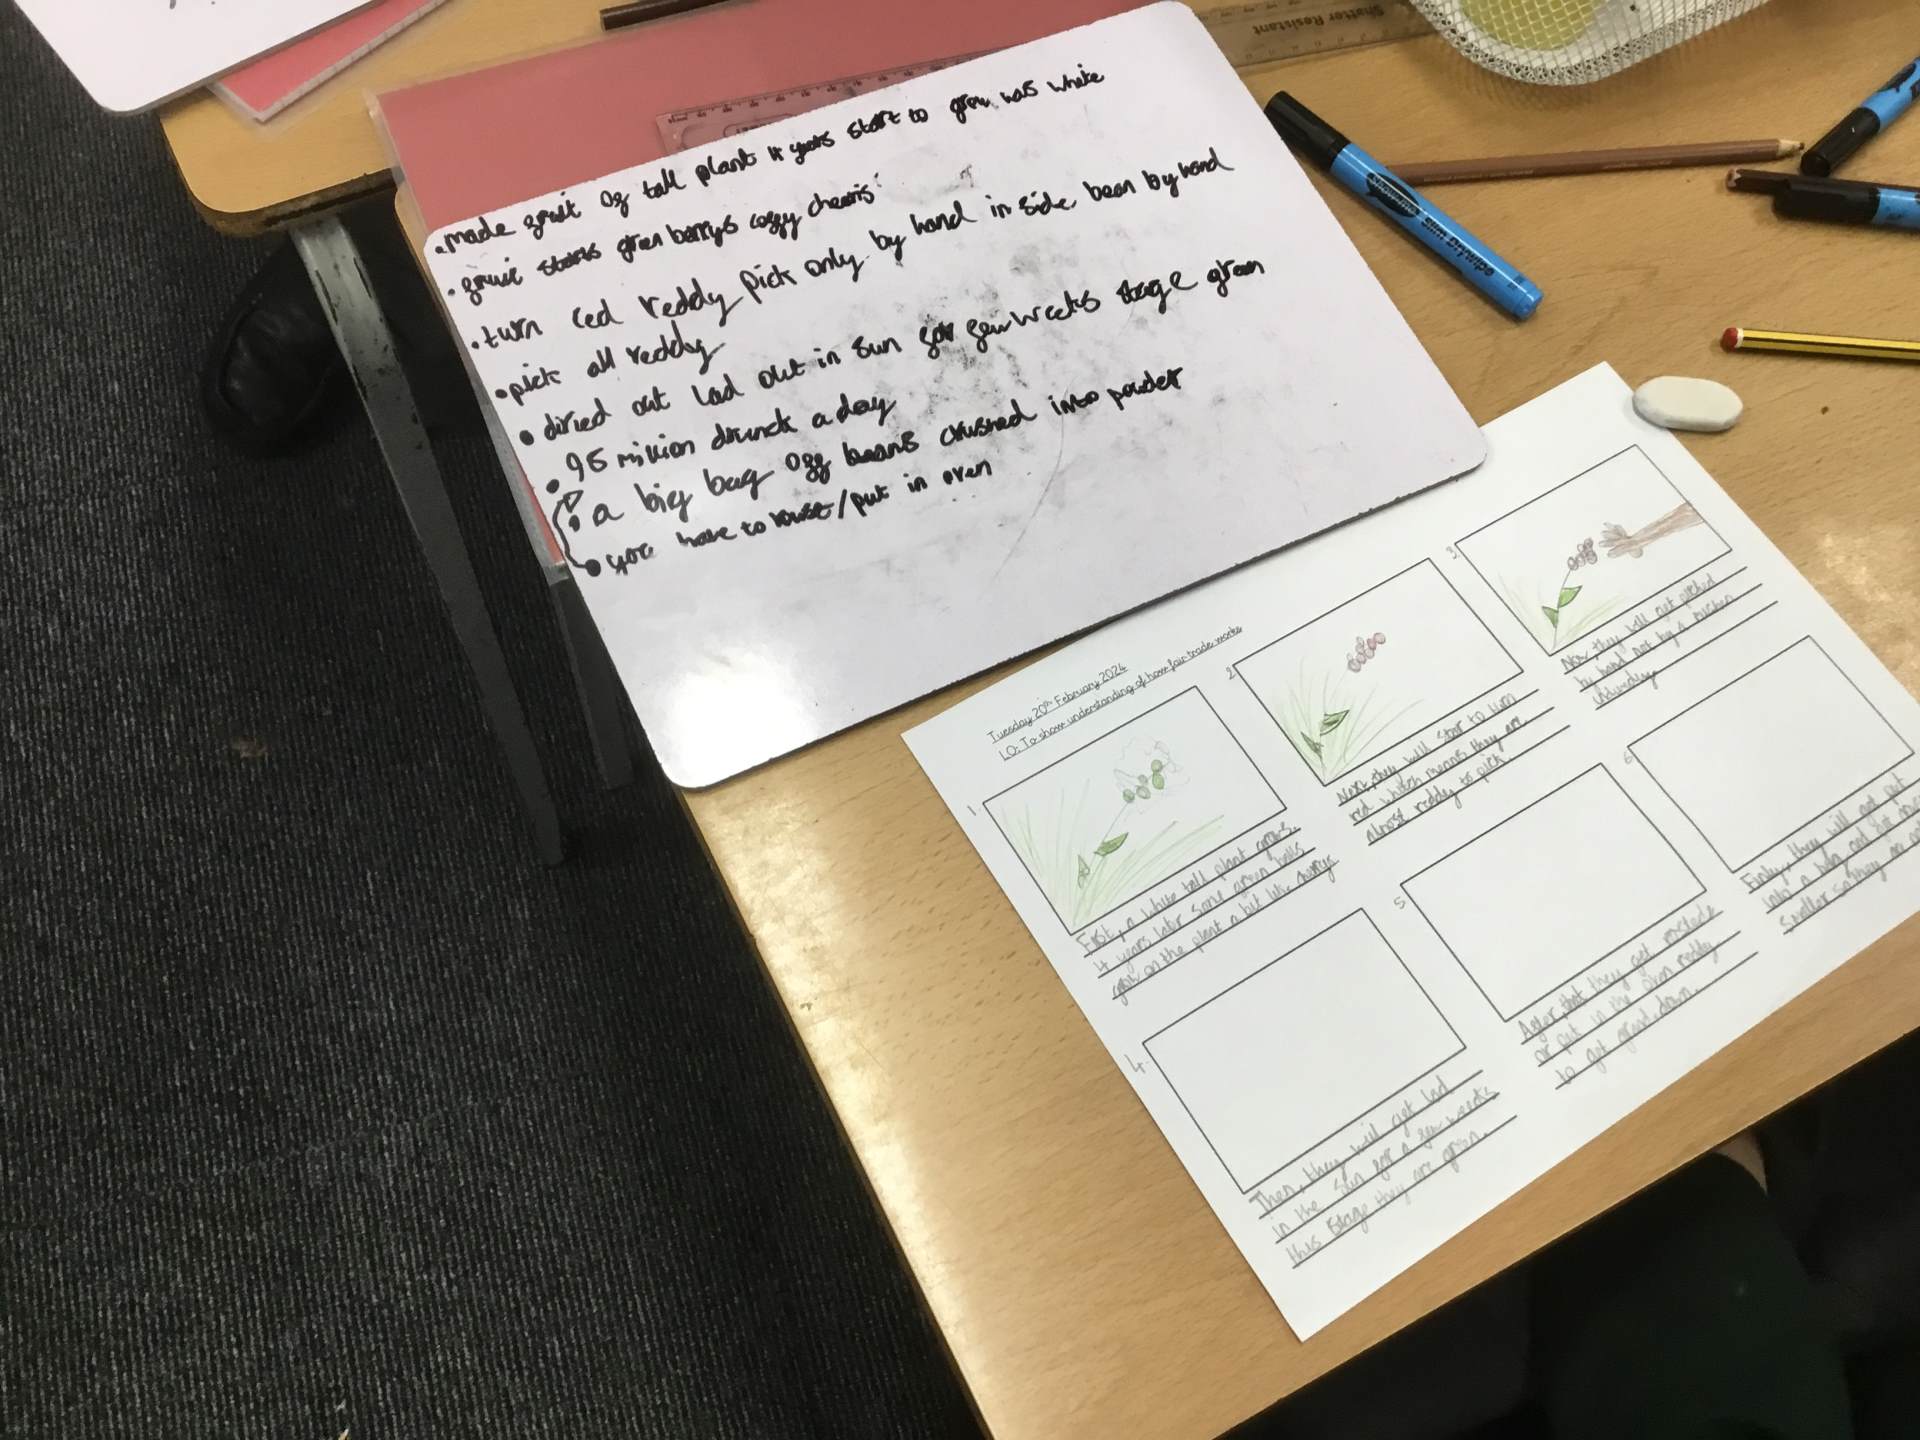 Shatter Resistant
• made fruit of tall plant 4 years start to grow was white
• fruit starts green berrys coffy cherris
• turn red reddy pick only by hand in side bean by hand
• pick all reddy
• dired out lad out in sun for few weeks stage green
• 95 million drunck a day
• a big bag off beans crushed into powder
• you have to rowst/put in oven
showme Slim Drywipe
Tuesday 20th February 2024
LO: To show understanding of how fair trade works
1.
First, a white tall plant grows.
4 years later some green balls
grow on the plant a bit like cherrys
2.
Next, they will start to turn
red which means they are
almost reddy to pick.
3.
Now, they will get picked
by hand not by a
4.
Then, they will get lad
in the sun for a few weeks
this stage they are green.
5.
After that they get rosted
or put in the oven reddy
to get grond down.
6.
Finly, they will get put
into a bag and
smaller so they are